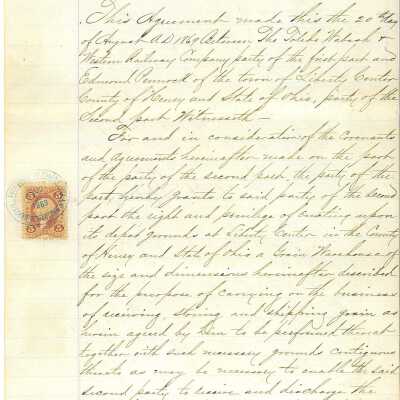 This Agreement made this the 20th day
of August A.D 1869 Between The Toledo Wabash &
Western Railway Company party of the first part and
Edmond of the town of Liberty Center
County of Henry and State of Ohio, party of the
Second part Witnesseth—
For and in consideration of the Covenants
and Agreements hereinafter made on the part
of the party of the second part, the party of the
part, hereby grants to said party of the second
part the right and privilege of erecting upon
its depot grounds at Liberty Center in the County
of Henry and State of Ohio a Grain Warehouse of
the size and dimensions hereinafter described
for the purpose of carrying on the business
of receiving, storing and shipping grain as
herein agreed by him to be performed thereat
together with such necessary grounds contiguous
thereto as may be necessary to enable the said
second party to receive and discharge the